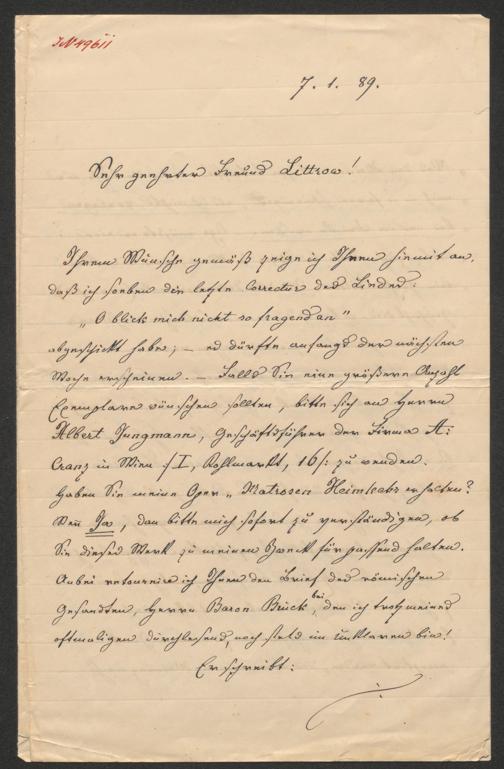 IN 49611
7. 1. 89.
Sehr geehrter Freund Littrow!
Ihrem Wunsche gemäß zeige ich Ihnen hiemit an,
daß ich soeben die letzte Correctur des Liedes:
„O blick mich nicht so fragend an"
abgeschickt habe; – es dürfte anfangs der nächsten
Woche erscheinen. – Falls Sie eine größere Anzahl
Exemplare wünschen sollten, bitte sich an Herrn
Albert Jungmann, Geschäftsführer der Firma A:
Cranz in Wien :/I, Kohlmarkt, 16/: zu wenden.
Haben Sie meine Oper „Matrosen Heimkehr erhalten?
Wenn Ja, dan bitte mich sofort zu verständigen, ob
Sie dieses Werk zu meinem Zweck für passend halten.
Anbei retournire ich Ihnen den Brief des römischen
Gesandten, Herrn Baron Bruck, bei den ich trotz meines
oftmaligen durchlesens, noch stets im Unklaren bin!
Er schreibt: